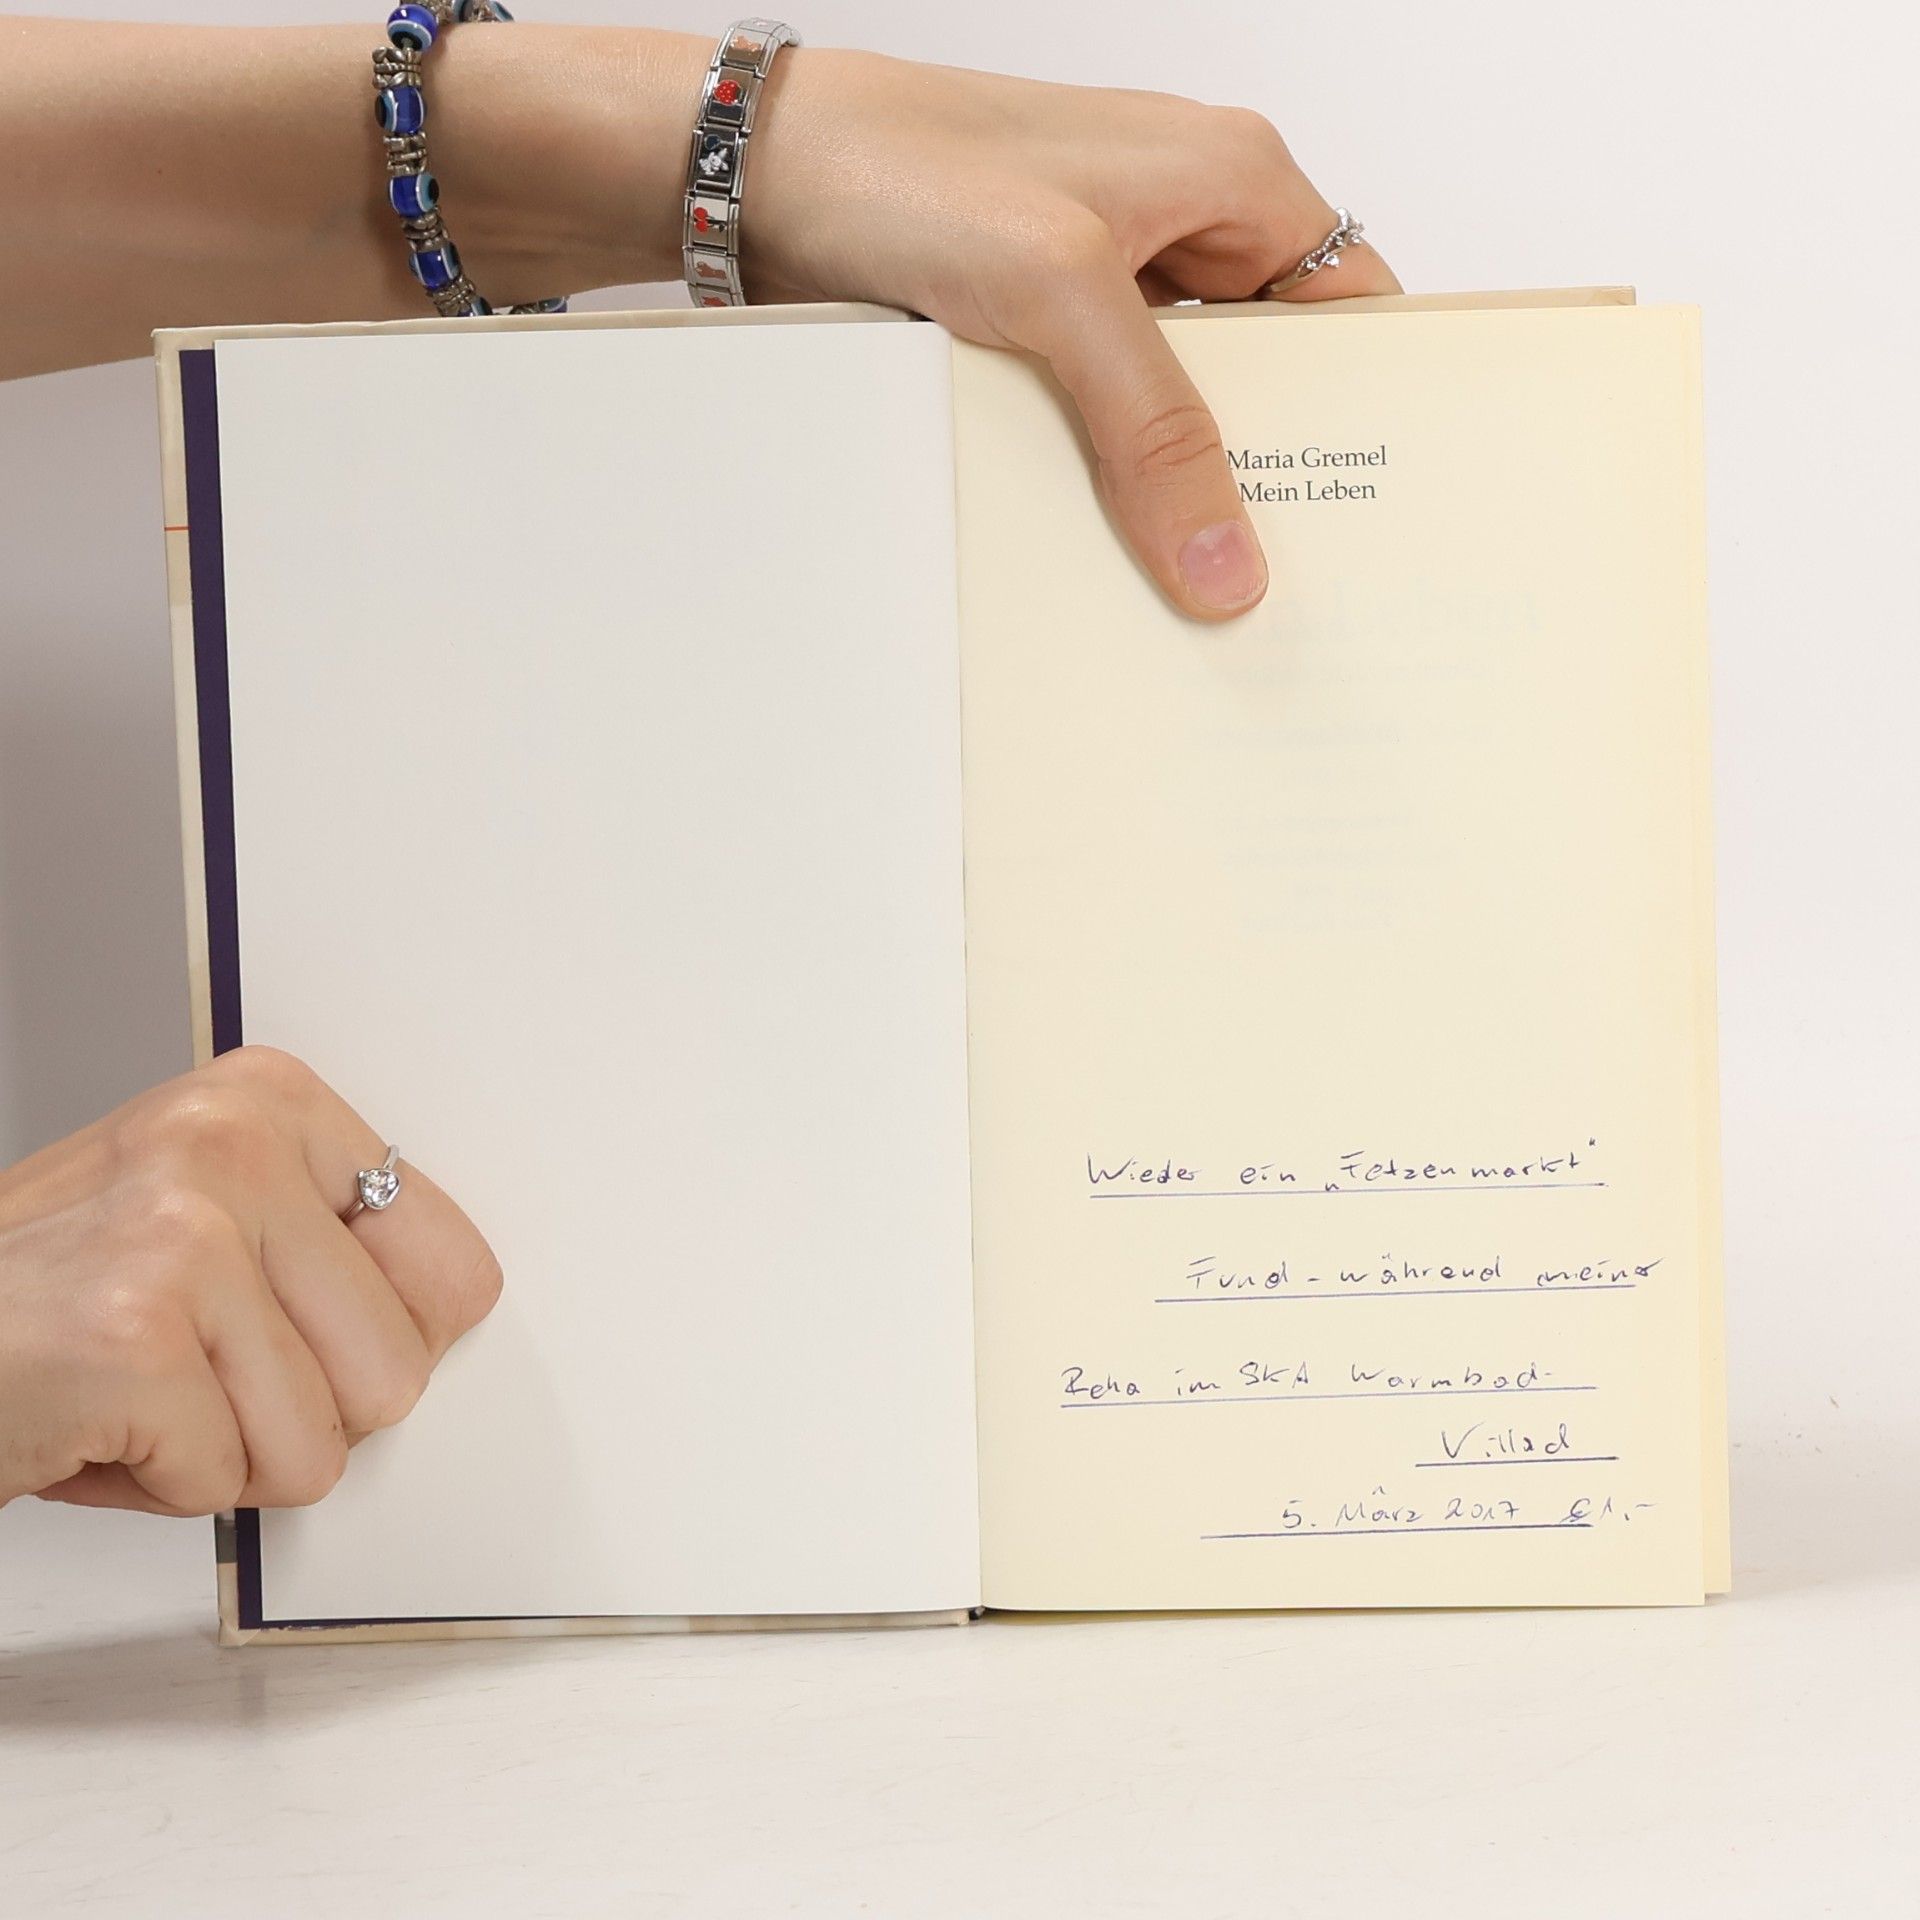 Maria Gremel
Mein Leben
Wieder ein „Fetzenmarkt"
Fund - während meiner
Reha im SKA Warmbad-
Villach
5. März 2017 € 1,-